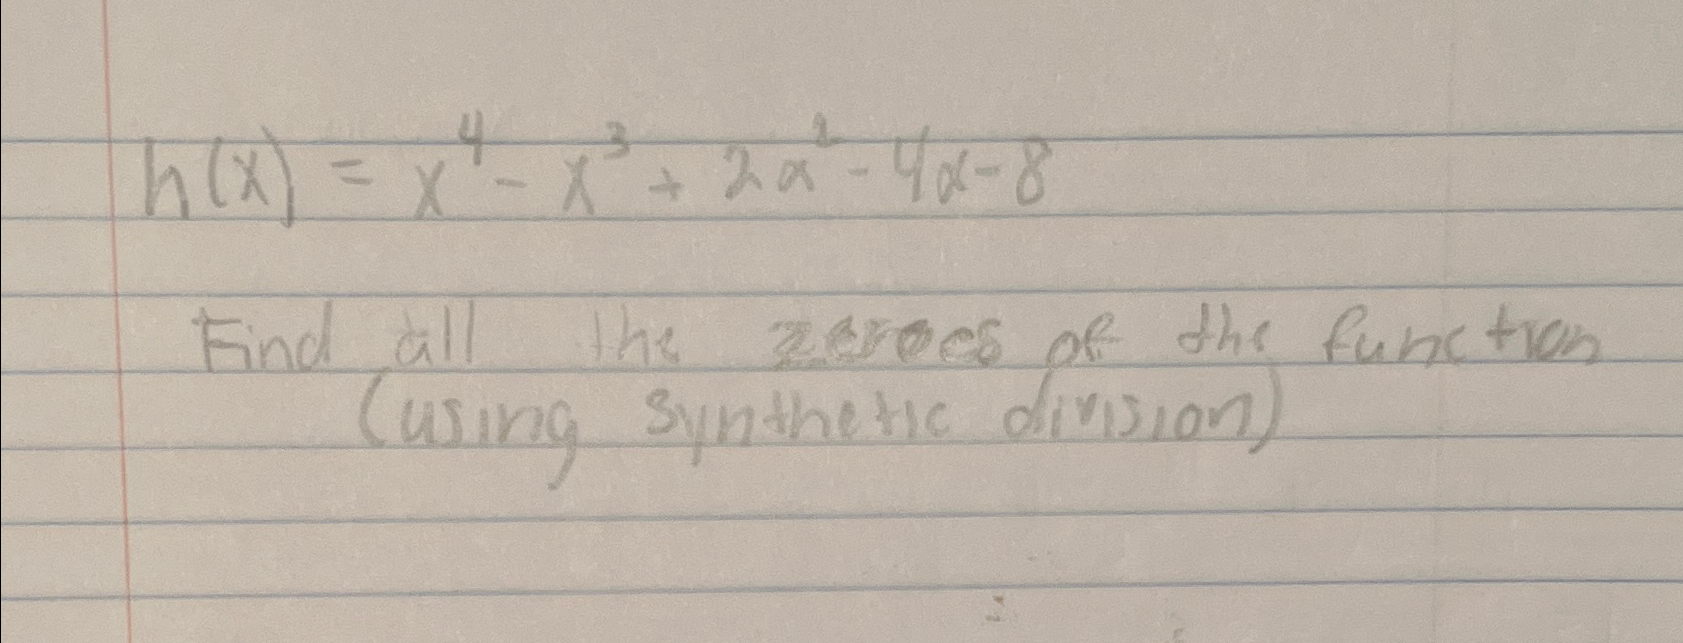 h(x) = x⁴ - x³ + 2x² - 4x - 8
Find all the zeroes of the function
(using synthetic division)